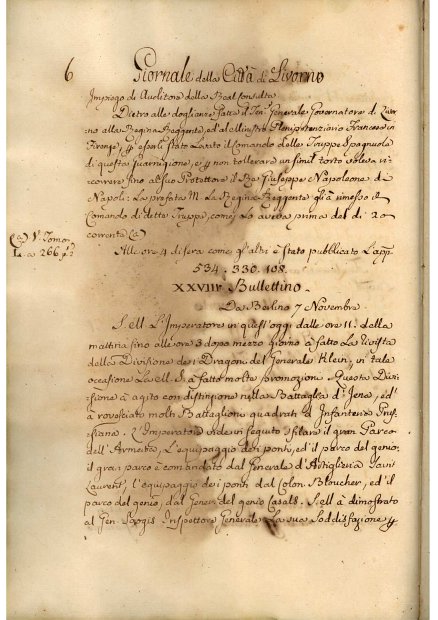 6 Giornale della Città di Livorno
Impiego di Auditore della Real Consulta
Dietro alle doglianze fatte dal Ten. Generale Governatore di Livor-
no alla Regina Reggente, ed al Ministro Plenipotenziario Francese in
Firenze, esserli stato Levato il Comando delle Truppe Spagnuole
di questa Guarnigione, e non tollerare un simil torto voleva ri-
correre fino al suo Protettore il Re Giuseppe Napoleone di
Napoli: La prefata M. La Regina Reggente gl'à rimesso il
Comando di dette Truppe, come Lo aveva prima del di 20
corrente
Tomo
266
Alle ore 4 di sera come gl'altri è stato pubblicato L'app.
534. 330. 108.
XXVIII° Bullettino.
Da Berlino 7 Novembre
S. ell L'Imperatore in quest'oggi dalle ore 11. della
mattina fino alle ore 3 dopo mezzo giorno à fatto La Rivista
della Divisione dei Dragoni del Generale Klein, in tale
occasione La ell. S. à fatto molte promozioni. Questa Divi-
sione à agito con distinzione nella Battaglia d'Jena, ed'
à rovesciato molti Battaglioni quadrati d'Infanteria Prus-
siana. L'Imperatore vide in seguito sfilare il gran Parco
dell'Armata, L'equipaggio dei ponti, ed'il parco del genio:
il gran parco è comandato dal Generale d'Artiglieria Saint
Laurent, L'equipaggio dei ponti dal Colon. Bloucher, ed'il
parco del genio, dal Gener. del genio Casals. S. ell à dimostrato
al Gen. Inspettore Generale La sua Soddisfazione